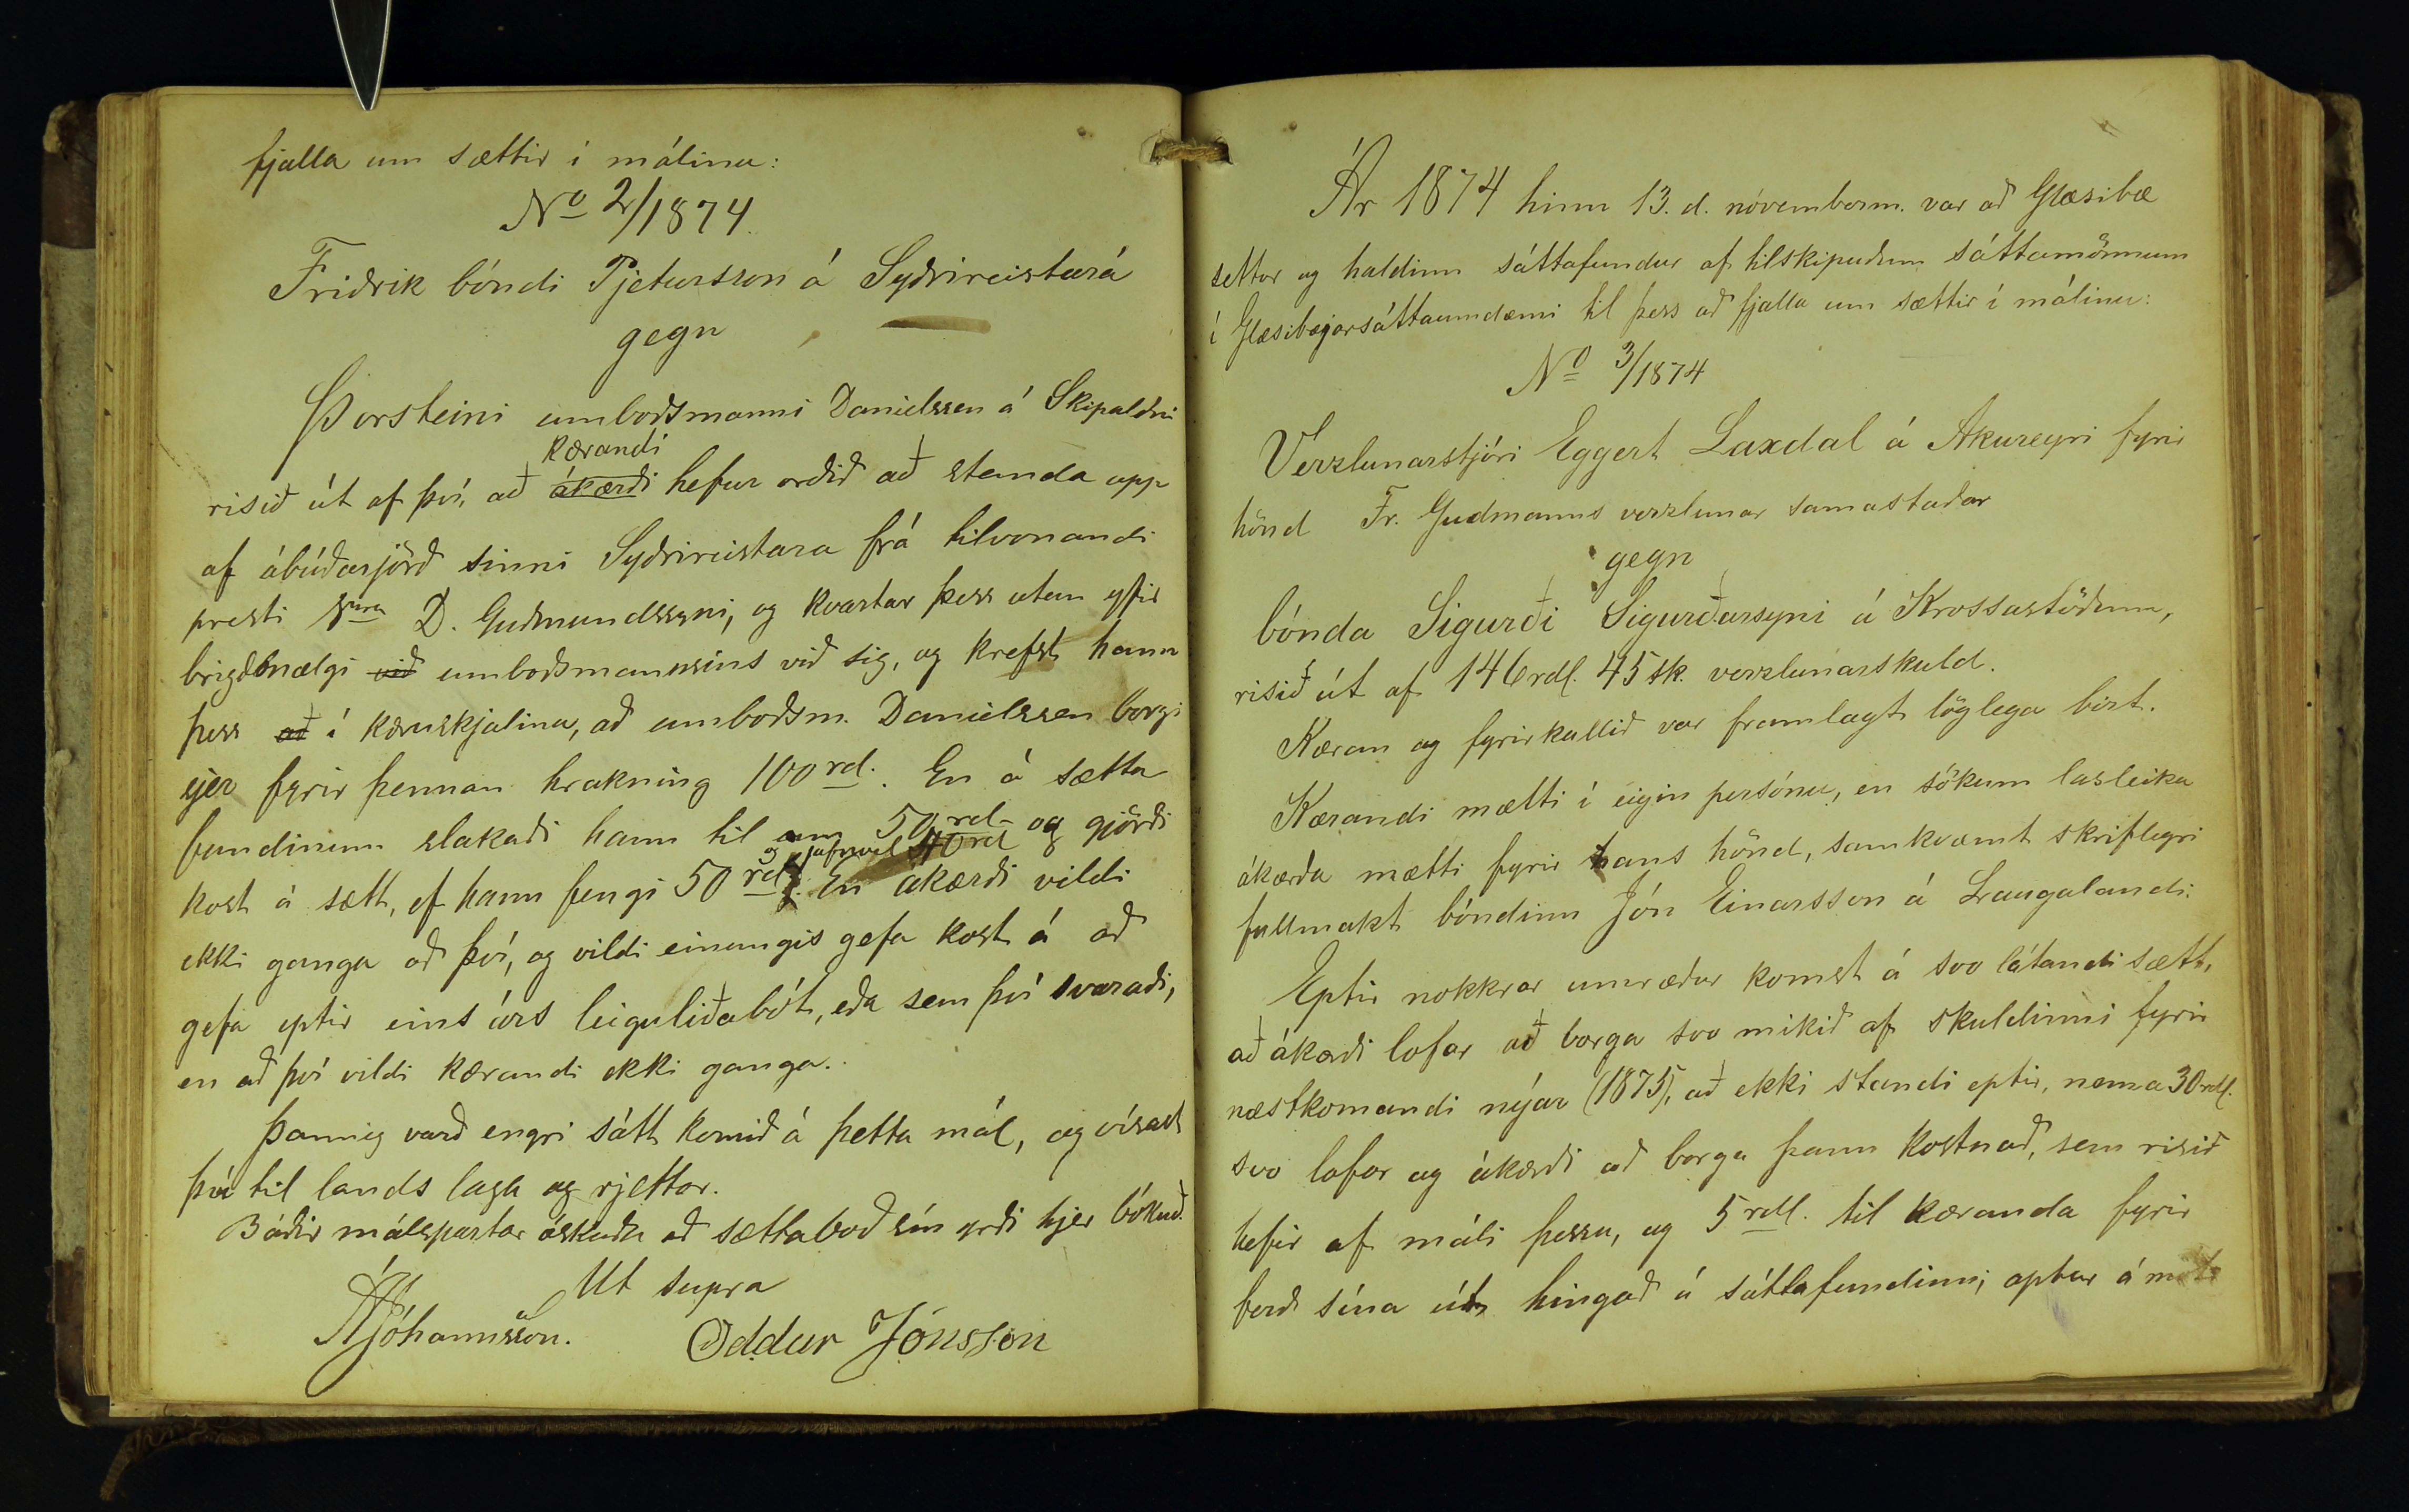 fjalla um sættir í málinu:
No 2/1874.
Friðrik bóndi Pjetursson á Syðrireistará
gegn
Þorsteini umboðsmanni Danielssen á Skipalóni
kærandi
risið út af því, að ákærði hefur orðið að standa upp
af ábúðarjörð sinni Syðrireistara frá tilvonandi
presti Sura D. Guðmundssyni, og kvartar þess utan yfir
brigðmælgi við umboðsmannsins við sig, og krefst hann
þess að í kæruskjalinu, að umboðsm. Danielssen borgi
sjer fyrir þennan hrakning 100 rd. En á sætta
fundinum slakaði hann til um 50 rd og gjörði
og jafnvel 40 rd
kost á sætt, ef hann fengi 50 rd. En ákærði vildi
ekki ganga að því, og vildi einungis gefa kost á að
gefa eptir eins árs leiguliðabót, eða sem því svaraði,
en að því vildi kærandi ekki ganga.
Þannig varð engri sátt komið á þetta mál, og vísast
því til lands laga og rjettar.
Báðir málspartar óskuðu að sættaboð sín yrði hjer bókuð.
Ut supra
Jóhannsson. Oddur Jónsson
Ár 1874 hinn 13. d. nóvemberm. var að Glæsibæ
settur og haldinn sáttafundur af tilskipuðum sáttamönnum
í Glæsibæjarsáttaumdæmi til þess að fjalla um sættir í málinu:
No 3/1874
Verzlunarstjóri Eggert Laxdal á Akureyri fyrir
hönd Fr. Gudmanns verzlunar samastaðar
gegn
bónda Sigurði Sigurðarsyni á Krossastöðum,
risið út af 146 rdl. 45 sk. verzlunarskuld.
Kæran og fyrirkallið var framlagt löglega birt.
Kærandi mætti í eigin persónu, en sökum lasleika
ákærða mætti fyrir hans hönd, samkvæmt skriflegri
fullmakt bóndinn Jón Einarsson á Laugalandi.
Eptir nokkrar umræður komst á svo látandi sætt,
að ákærði lofar að borga svo mikið af skuldinni fyrir
næstkomandi nýár (1875), að ekki standi eptir, nema 30 rdl.
svo lofar og ákærði að borga þann kostnað, sem risið
hefir af máli þessu, og 5 rdl. til kæranda fyrir
ferð sína út hingað á sáttafundinn; aptur á móti